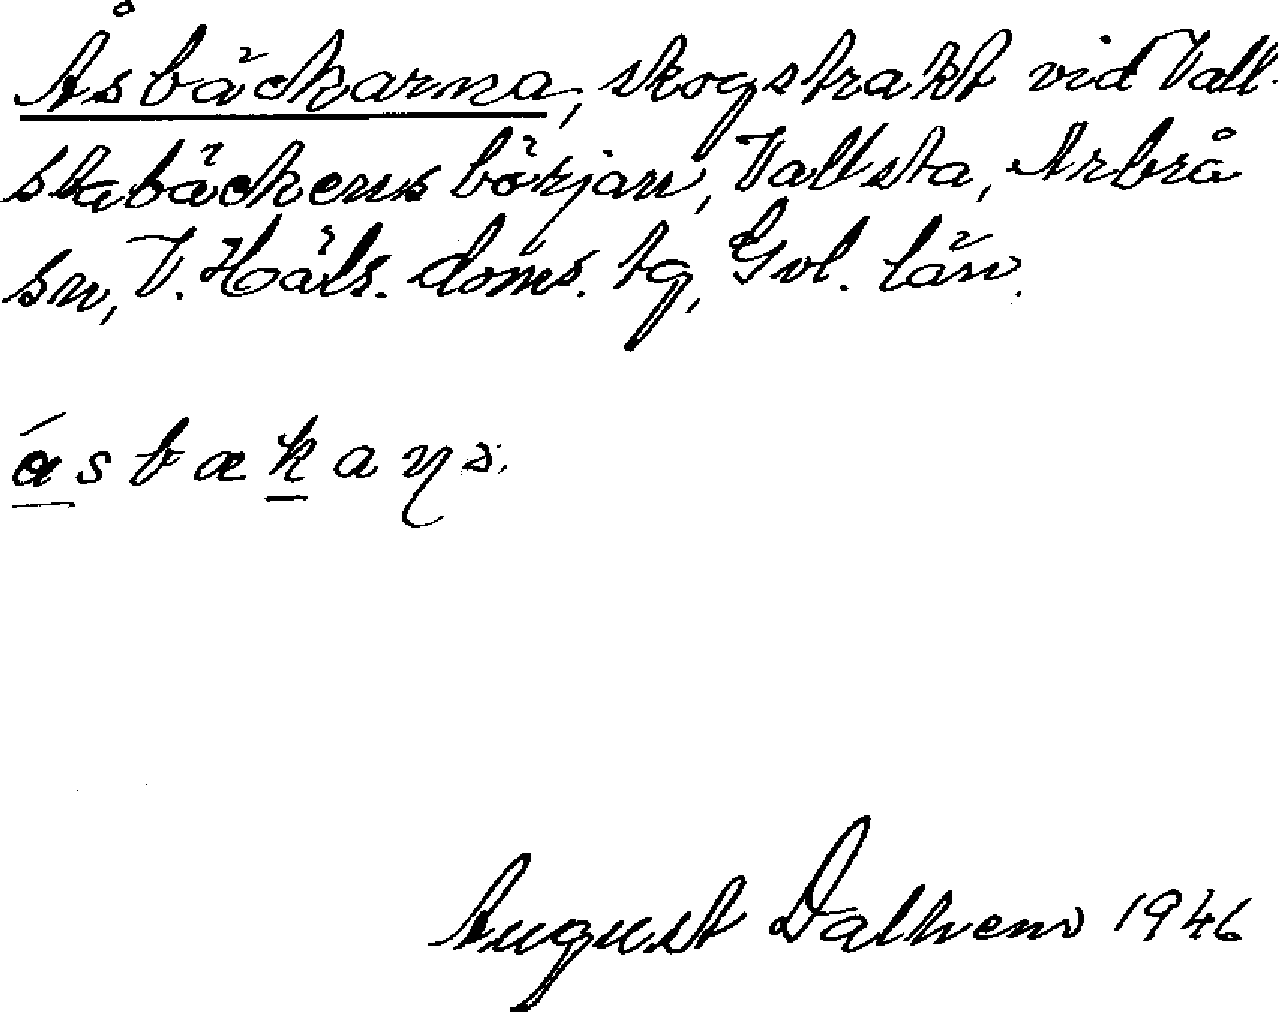 Åsbäckarna, skogstrakt vid Vall-
stabäckens början, Vallsta, Arbrå
sn, V. Häls. doms. tg, Gvl. län.
ásbækaŋə.
August Dalhem 1946